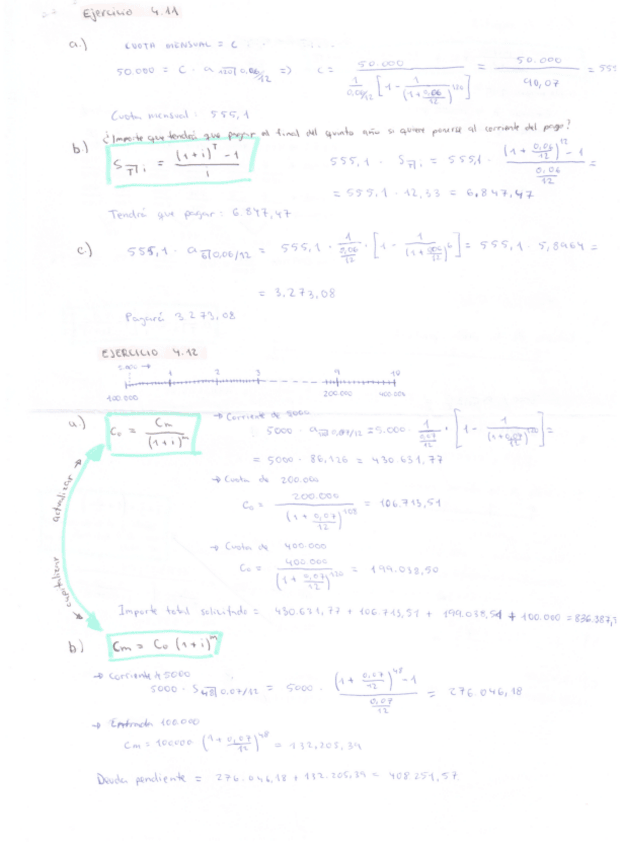 Ejercicio 4.11
a.) CUOTA MENSUAL = C
50.000 = C · a 120| 0,06/12 => C = 50.000 / (1/(0,06/12) [1 - 1/(1+0,06/12)^120]) = 50.000 / 90,07 = 555
Cuota mensual: 555,1
b) ¿Importe que tendrá que pagar al final del quinto año si quiere ponerse al corriente del pago?
S T| i = ((1+i)^T - 1) / i
555,1 · S T| i = 555,1 · ((1 + 0,06/12)^12 - 1) / (0,06/12) =
= 555,1 · 12,33 = 6.847,47
Tendrá que pagar: 6.847,47
c.) 555,1 · a 6| 0,06/12 = 555,1 · 1/(0,06/12) · [1 - 1/(1+0,06/12)^6] = 555,1 · 5,8964 =
= 3.273,08
Pagará 3.273,08
EJERCICIO 4.12
5000 → 1 2 3 9 10
100.000 200.000 400.000
a.) C₀ = Cm / (1+i)^m
→ Corriente de 5000
5000 · a 120| 0,07/12 = 5.000 · 1/(0,07/12) · [1 - 1/(1+0,07/12)^120] =
= 5000 · 86,126 = 430.631,77
→ Cuota de 200.000
C₀ = 200.000 / (1 + 0,07/12)^108 = 106.713,51
→ Cuota de 400.000
C₀ = 400.000 / (1 + 0,07/12)^120 = 199.038,50
actualizar
capitalizar
Importe total solicitado = 430.631,77 + 106.713,51 + 199.038,50 + 100.000 = 836.387,
b) Cm = C₀ (1+i)^m
→ Corriente de 5000
5000 · S 48| 0,07/12 = 5000 · ((1 + 0,07/12)^48 - 1) / (0,07/12) = 276.046,18
→ Entrada 100.000
Cm = 100000 · (1 + 0,07/12)^48 = 132.205,39
Deuda pendiente = 276.046,18 + 132.205,39 = 408.251,57